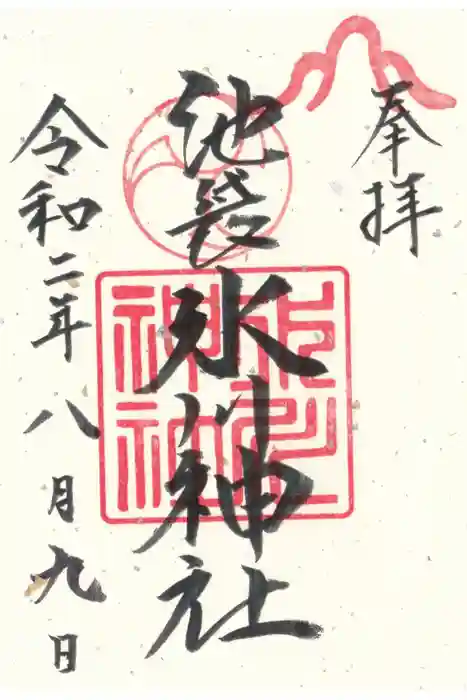 奉拝
池袋氷川神社
氷川
神社
令和二年八月九日